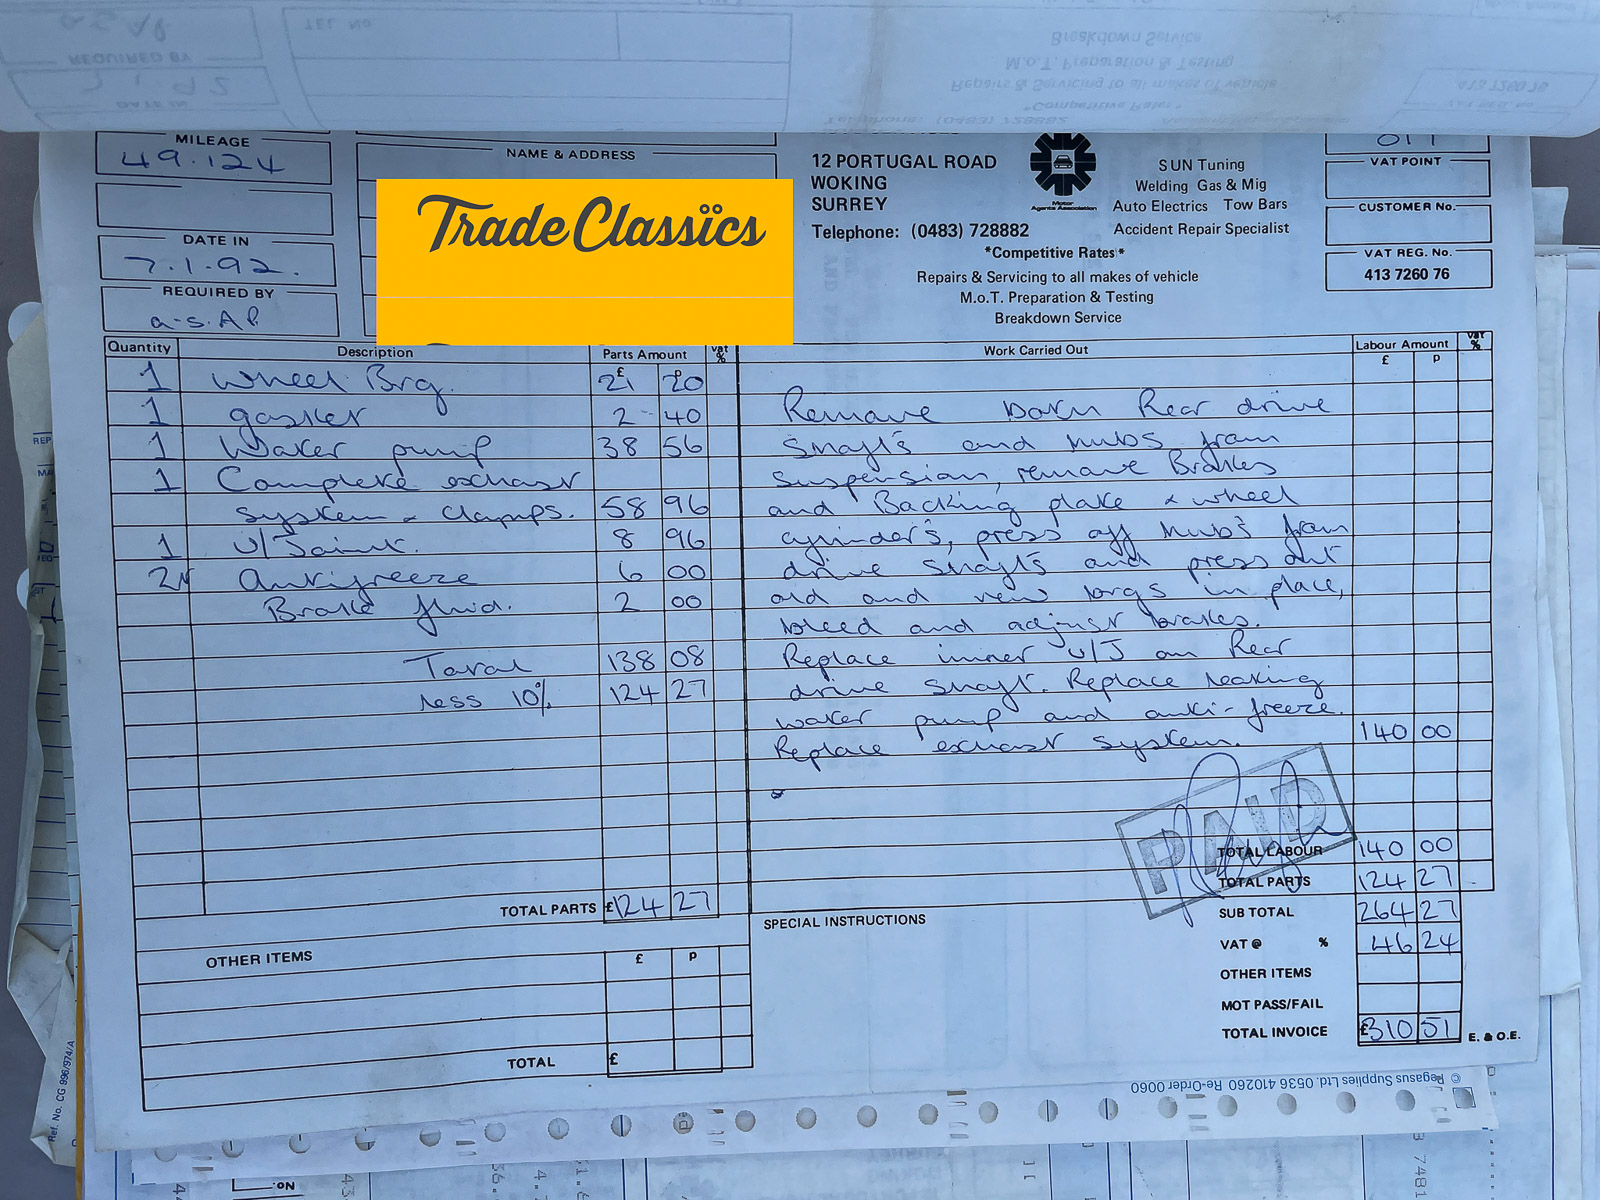 a.s.AP
REQUIRED BY
7.1.92
DATE IN
TEL. No.
Breakdown Service
M.o.T. Preparation & Testing
Repairs & Servicing to all makes of vehicle
*Competitive Rates*
Telephone: (0483) 728882
VAT REG. No.
413 7260 76
MILEAGE
49.124
DATE IN
7.1.92.
REQUIRED BY
a-s.AP.
NAME & ADDRESS
Trade Classics
12 PORTUGAL ROAD
WOKING
SURREY
Telephone: (0483) 728882
Motor
Agents Association
SUN Tuning
Welding Gas & Mig
Auto Electrics Tow Bars
Accident Repair Specialist
*Competitive Rates*
Repairs & Servicing to all makes of vehicle
M.o.T. Preparation & Testing
Breakdown Service
VAT POINT
CUSTOMER No.
VAT REG. No.
413 7260 76
Quantity Description Parts Amount Vat %
£ p
1 Wheel Brg. 21 20
1 gasket 2 - 40
1 Water pump 38 56
1 Complete exhast
system & clamps. 58 96
1 U/Joint. 8 96
Antifreeze 6 00
Brake fluid. 2 00
Total 138 08
Less 10% 124 27
TOTAL PARTS £124 27
Work Carried Out Labour Amount Vat %
£ p
Remove both Rear drive
shafts and hubs from
suspension, remove Brakes
and Backing plate & wheel
cylinder's, press off hub's from
drive shafts and press out
old and new brgs in place,
bleed and adjust brakes.
Replace inner U/J on Rear
drive shaft. Replace leaking
water pump and anti-freeze.
Replace exhast system. 140 00
PAID
TOTAL LABOUR 140 00
TOTAL PARTS 124 27
SUB TOTAL 264 27
VAT @ % 46 24
OTHER ITEMS
MOT PASS/FAIL
TOTAL INVOICE £310 51
E. & O.E.
SPECIAL INSTRUCTIONS
OTHER ITEMS £ p
TOTAL £
© Pegasus Supplies Ltd. 0536 410260 Re-Order 0060
Ref. No. CG 996/974/A
No.